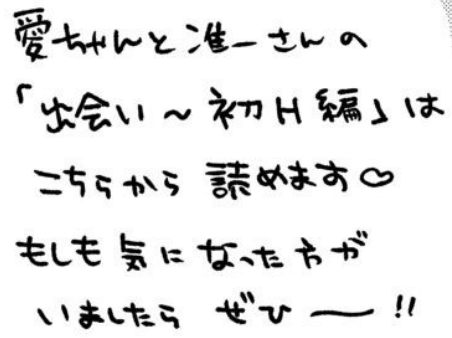 愛ちゃんと準一さんの
「出会い～初H編」は
こちらから 読めます♡
もしも気になった方が
いましたら ぜひ――!!